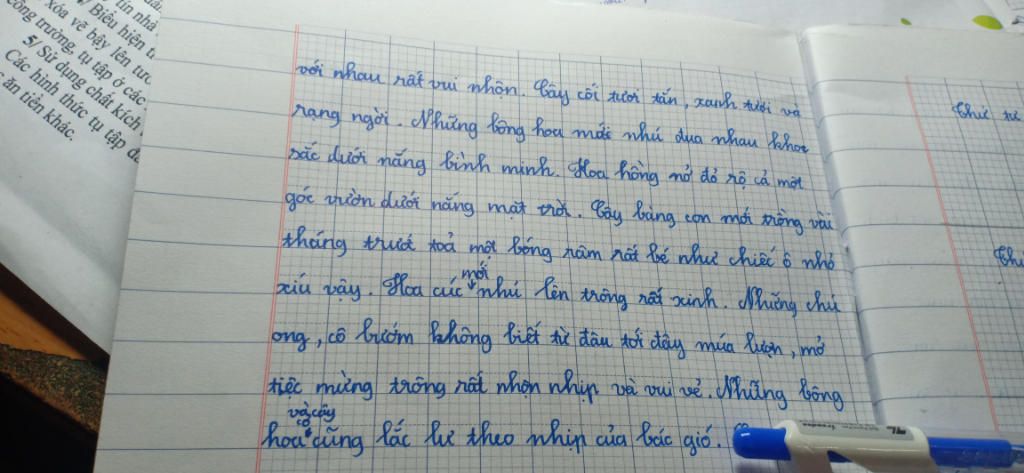 tín nhắ
/ Biểu hiện t
xóa vẽ bậy lên tườ
công trường, tụ tập ở các
5/ Sử dụng chất kích
Các hình thức tụ tập đ
ăn tiền khác.
với nhau rất vui nhộn. Cây cối tươi tắn, xanh tươi và
rạng ngời. Những bông hoa mới nhú đua nhau khoe
sắc dưới nắng bình minh. Hoa hồng nở đỏ rộ cả một
góc vườn dưới nắng mặt trời. Cây bàng con mới trồng vài
tháng trướt toả một bóng râm rất bé như chiếc ô nhỏ
xíu vậy. Hoa cúc mới nhú lên trông rất xinh. Những chú
ong, cô bướm không biết từ đâu tới đây múa lượn, mở
tiệc mừng trông rất nhộn nhịp và vui vẻ. Những bông
hoa và cây cỏ cũng lắc lư theo nhịp của bác gió.
Thứ tư
Thứ